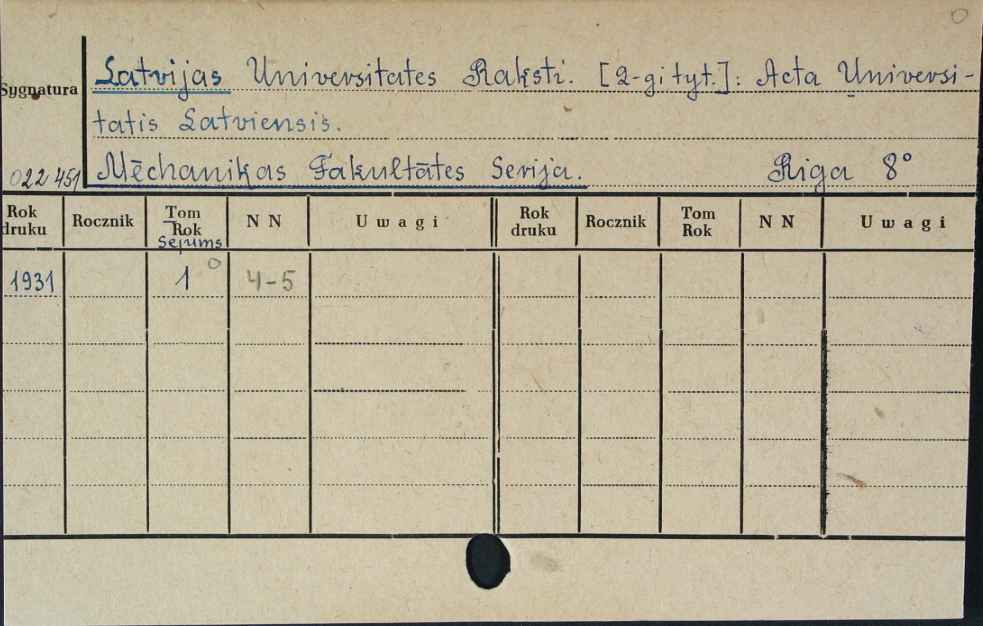 Latvijas Universitates Raksti. [2-gi tyt.]: Acta Universi-
Sygnatura
tatis Latviensis.
022 451 Mēchanikas Fakultātes Serija. Riga 8°
Rok druku Rocznik Tom Rok Sējums N N Uwagi Rok druku Rocznik Tom Rok N N Uwagi
1931 1 4-5